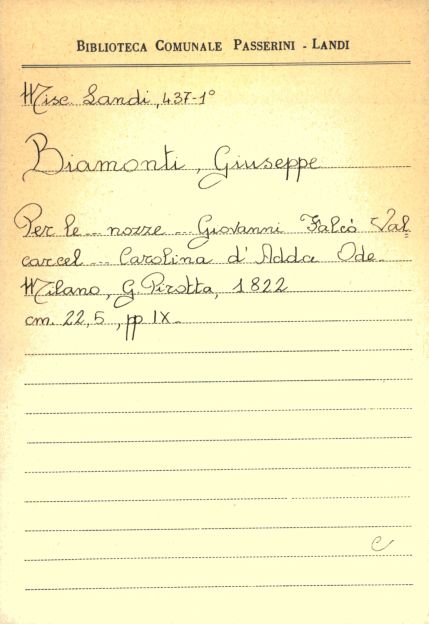 BIBLIOTECA COMUNALE PASSERINI - LANDI
Misc. Landi, 437-1°
Biamonti, Giuseppe
Per le ... nozze ... Giovanni Falcò Val=
carcel ... Carolina d'Adda Ode.
Milano, G. Pirotta, 1822
cm. 22,5, pp IX.
C